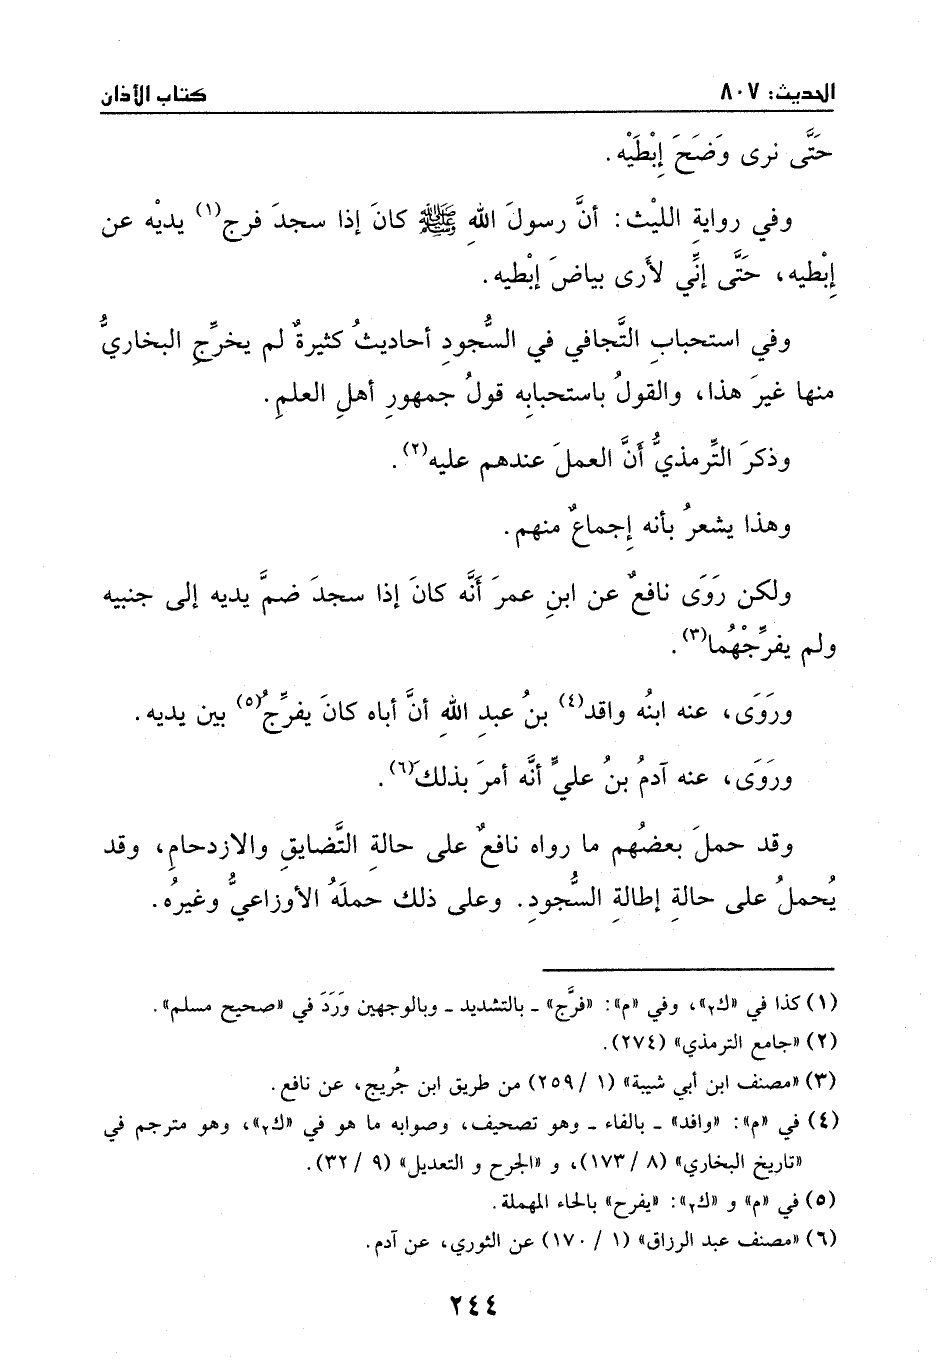 الحديث: ٨٠٧ كتاب الأذان
حَتَّى نرى وَضَحَ إِبْطَيْه.
وفي روايةِ الليْث: أنَّ رسولَ اللهِ ﷺ كانَ إذا سجدَ فرج(١) يديْه عن
إِبْطيه، حَتَّى إنِّي لأَرى بياضَ إبْطيه.
وفي استحبابِ التَّجافي في السُّجودِ أحاديثُ كثيرةٌ لم يخرِّجِ البخاريُّ
منها غيرَ هذا، والقولُ باستحبابِه قولُ جمهورِ أهلِ العلمِ.
وذكرَ التِّرمذيُّ أَنَّ العملَ عندهم عليه(٢).
وهذا يشعرُ بأنه إِجماعٌ منهم.
ولكن رَوَى نافعٌ عن ابنِ عمرَ أَنَّه كانَ إذا سجدَ ضمَّ يديه إلى جنبيه
ولم يفرِّجْهُما(٣).
ورَوَى، عنه ابنُه واقد(٤) بنُ عبدِ اللهِ أنَّ أباه كانَ يفرِّجُ(٥) بين يديه.
ورَوَى، عنه آدمُ بنُ عليٍّ أنَّه أمرَ بذلكَ(٦).
وقد حملَ بعضُهم ما رواه نافعٌ على حالةِ التَّضايقِ والازدحامِ، وقد
يُحملُ على حالةِ إطالةِ السُّجودِ. وعلى ذلك حملَهُ الأوزاعيُّ وغيرُه.
(١) كذا في «ك٢»، وفي «م»: «فرَّج» ـ بالتشديد ـ وبالوجهين وَرَدَ في «صحيح مسلم».
(٢) «جامع الترمذي» (٢٧٤).
(٣) «مصنف ابن أبي شيبة» (١ / ٢٥٩) من طريق ابن جُريج، عن نافع.
(٤) في «م»: «وافد» ـ بالفاء ـ وهو تصحيف، وصوابه ما هو في «ك٢»، وهو مترجم في
«تاريخ البخاري» (٨ / ١٧٣)، و «الجرح و التعديل» (٩ / ٣٢).
(٥) في «م» و «ك٢»: «يفرح» بالحاء المهملة.
(٦) «مصنف عبد الرزاق» (١ / ١٧٠) عن الثوري، عن آدم.
٢٤٤